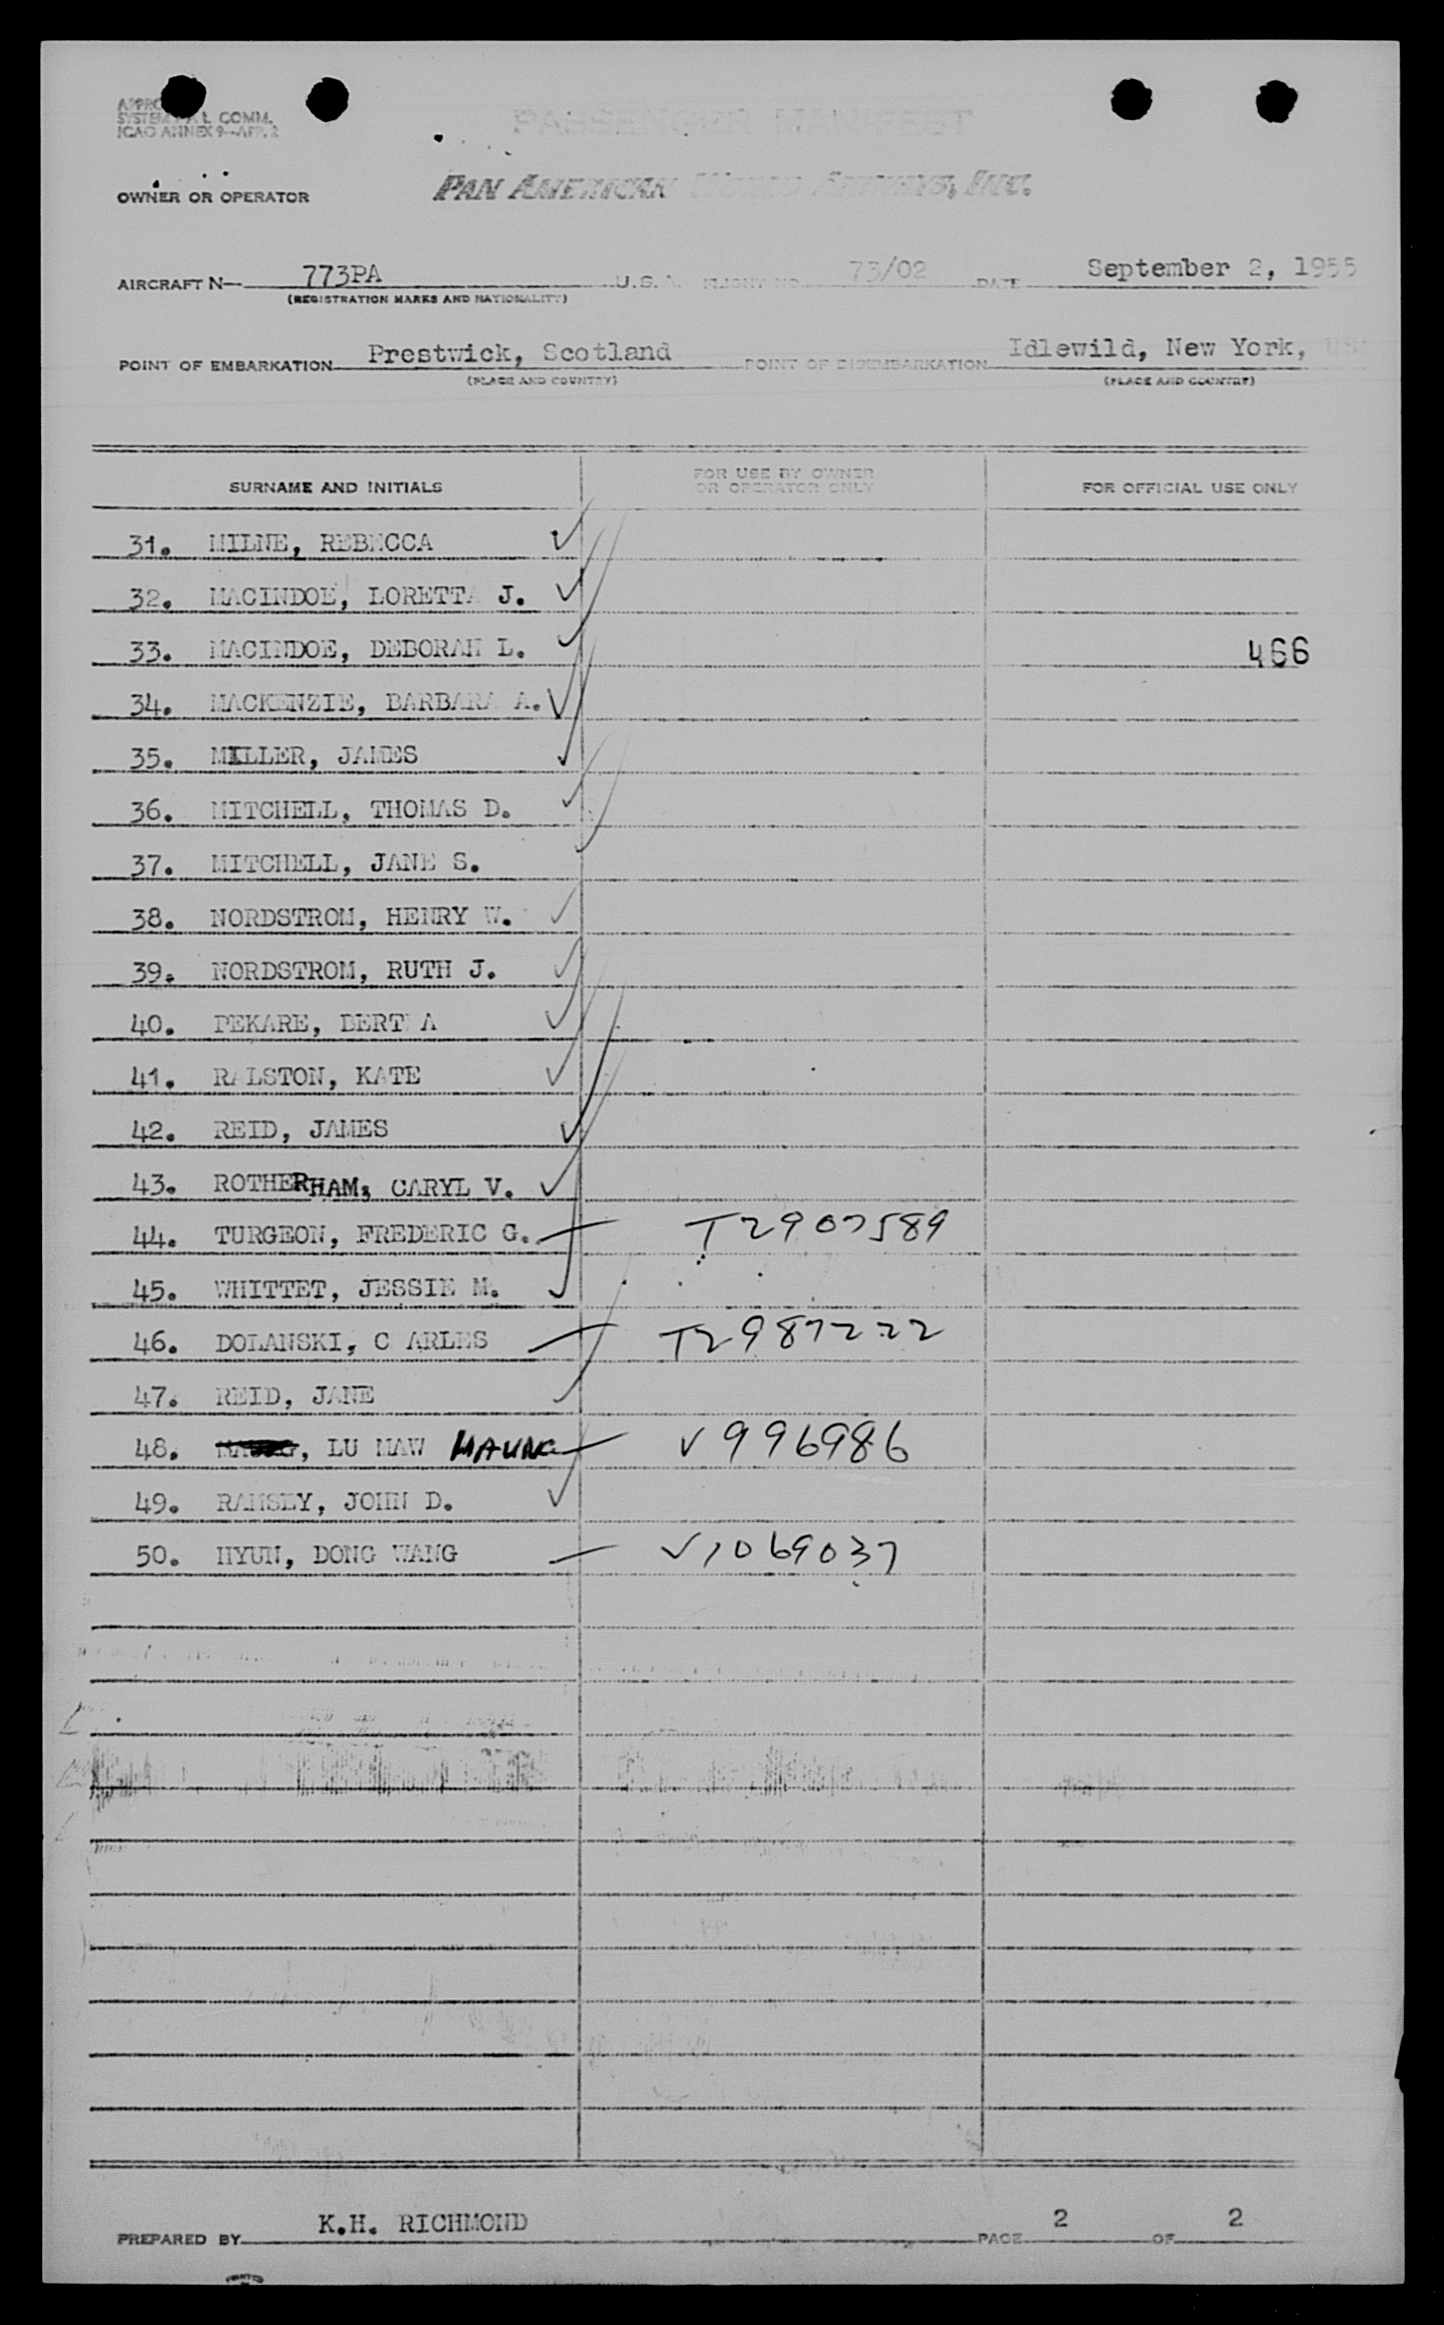 SYSTEM COMM.
ICAO ANNEX 9—APP. 2
PASSENGER MANIFEST
OWNER OR OPERATOR PAN AMERICAN WORLD AIRWAYS, INC.
AIRCRAFT N— 773PA U.S.A. FLIGHT NO 73/02 DATE September 2, 1955
(REGISTRATION MARKS AND NATIONALITY)
POINT OF EMBARKATION Prestwick, Scotland POINT OF DISEMBARKATION Idlewild, New York,
(PLACE AND COUNTRY) (PLACE AND COUNTRY)
SURNAME AND INITIALS FOR USE BY OWNER OR OPERATOR ONLY FOR OFFICIAL USE ONLY
31. MILNE, REBECCA ✓
32. MACINDOE, LORETTA J. ✓
33. MACINDOE, DEBORAH L. ✓ 466
34. MACKENZIE, BARBARA A. ✓
35. MILLER, JAMES ✓
36. MITCHELL, THOMAS D. ✓
37. MITCHELL, JANE S. ✓
38. NORDSTROM, HENRY W. ✓
39. NORDSTROM, RUTH J. ✓
40. PEKARE, BERT A ✓
41. RALSTON, KATE ✓
42. REID, JAMES ✓
43. ROTHERHAM, CARYL V. ✓
44. TURGEON, FREDERIC G. — T2907589
45. WHITTET, JESSIE M. ✓
46. DOLANSKI, C ARLES — T2987222
47. REID, JANE ✓
48. , LU MAW MAUNG — V996986
49. RAMSEY, JOHN D. ✓
50. HYUN, DONG WANG — V1069037
PREPARED BY K.H. RICHMOND PAGE 2 OF 2